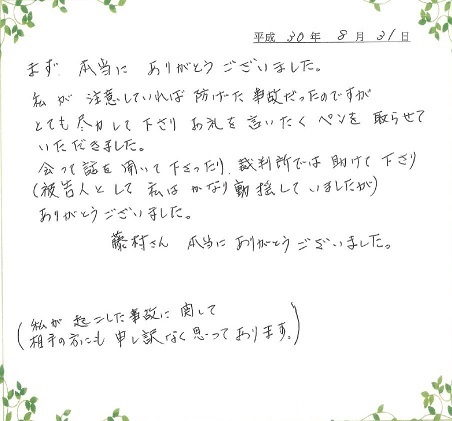 平成 30年 8月 31日
まず 本当に ありがとうございました。
私が 注意していれば 防げた 事故だったのですが
とても 尽力して 下さり お礼を 言いたく ペンを 取らせて
いただきました。
会って 話を 聞いて 下さったり、裁判所では 助けて 下さり
(被告人として 私は かなり 動揺して いましたが)
ありがとうございました。
藤村さん 本当に ありがとうございました。
(私が 起こした 事故に 関して
相手の方にも 申し訳なく 思って おります。)